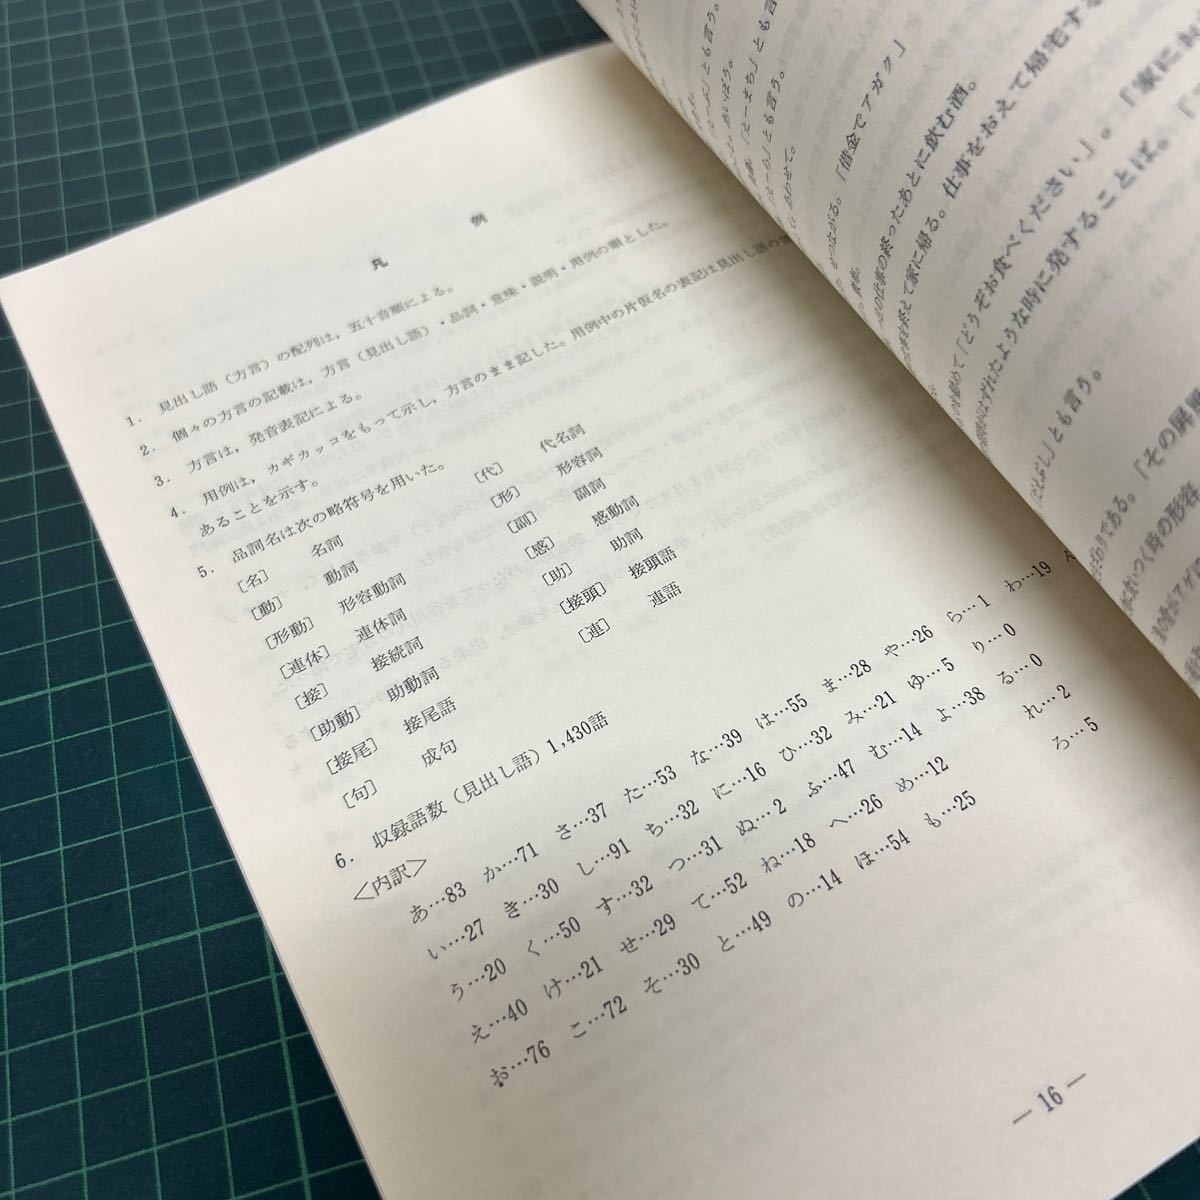 凡例
1. 見出し語(方言)の配列は,五十音順による。
2. 個々の方言の記載は,方言(見出し語)・品詞・意味・説明・用例の順とした。
3. 方言は,発音表記による。
4. 用例は,カギカッコをもって示し,方言のまま記した。用例中の片仮名の表記は見出し語の
あることを示す。
5. 品詞名は次の略符号を用いた。
[名] 名詞 [代] 代名詞
[動] 動詞 [形] 形容詞
[形動] 形容動詞 [副] 副詞
[連体] 連体詞 [感] 感動詞
[接] 接続詞 [助] 助詞
[助動] 助動詞 [接頭] 接頭語
[接尾] 接尾語 [連] 連語
[句] 成句
6. 収録語数(見出し語)1,430語
<内訳>
あ…83 か…71 さ…37 た…53 な…39 は…55 ま…28 や…26 ら…1 わ…19
い…27 き…30 し…91 ち…32 に…16 ひ…32 み…21 ゆ…5 り…0
う…20 く…50 す…32 つ…31 ぬ…2 ふ…47 む…14 よ…38 る…0
え…40 け…21 せ…29 て…52 ね…18 へ…26 め…12 れ…2
お…76 こ…72 そ…30 と…49 の…14 ほ…54 も…25 ろ…5
― 16 ―
とも言う。
とも言う。
あわせて。
「借金でアガク」
の仕事の終ったあとに飲む酒。
を終えて家に帰る。仕事をおえて帰宅する
めて「どうぞお食べください」。「家に
がはずれたような時に発することば。
とも言う。
ざわりである。「その屏
つく時の形容